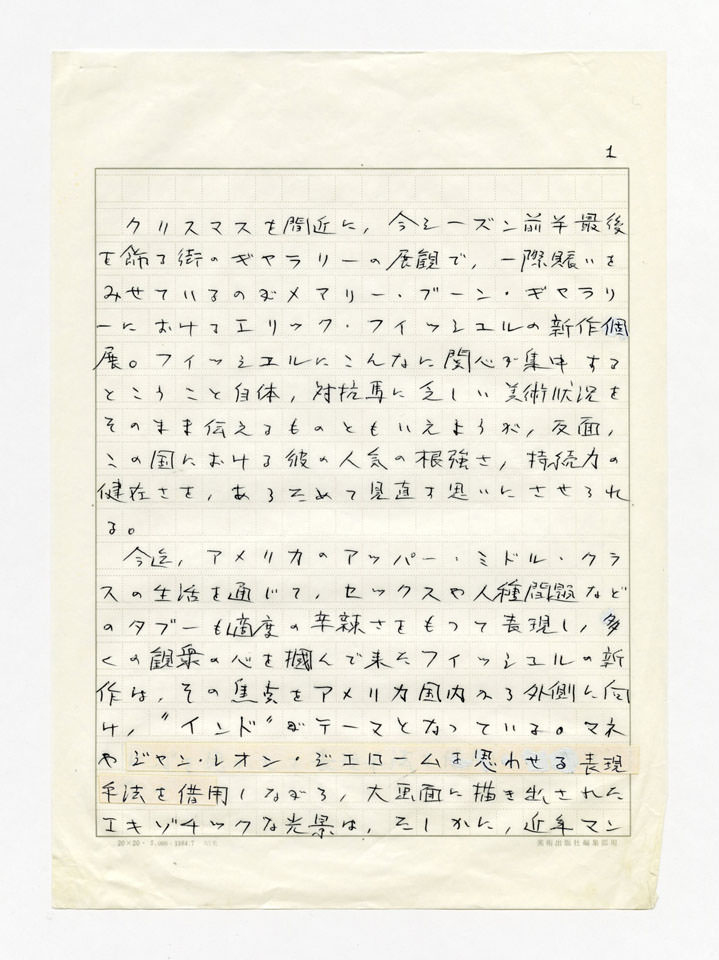 1
クリスマスを間近に，今シーズン前半最後
を飾る街のギャラリーの展観で，一際賑いを
みせているのがメアリー・ブーン・ギャラリ
ーにおけるエリック・フィッシェルの新作個
展。フィッシェルにこんなに関心が集中する
ということ自体，対抗馬に乏しい美術状況を
そのまま伝えるものともいえようが，反面，
この国における彼の人気の根強さ，持続力の
健在さを，あらためて見直す思いにさせられ
る。
今迄，アメリカのアッパー・ミドル・クラ
スの生活を通じて，セックスや人種問題など
のタブーも適度の辛辣さをもって表現し，多
くの観衆の心を摑んで来たフィッシェルの新
作は，その焦点をアメリカ国内から外側に向
け，〝インド〟がテーマとなっている。マネ
やジャン・レオン・ジェロームを思わせる表現
手法を借用しながら，大画面に描き出された
エキゾチックな光景は，たしかに，近年マン
20×20・3,000・1984.7
美術出版社編集部用